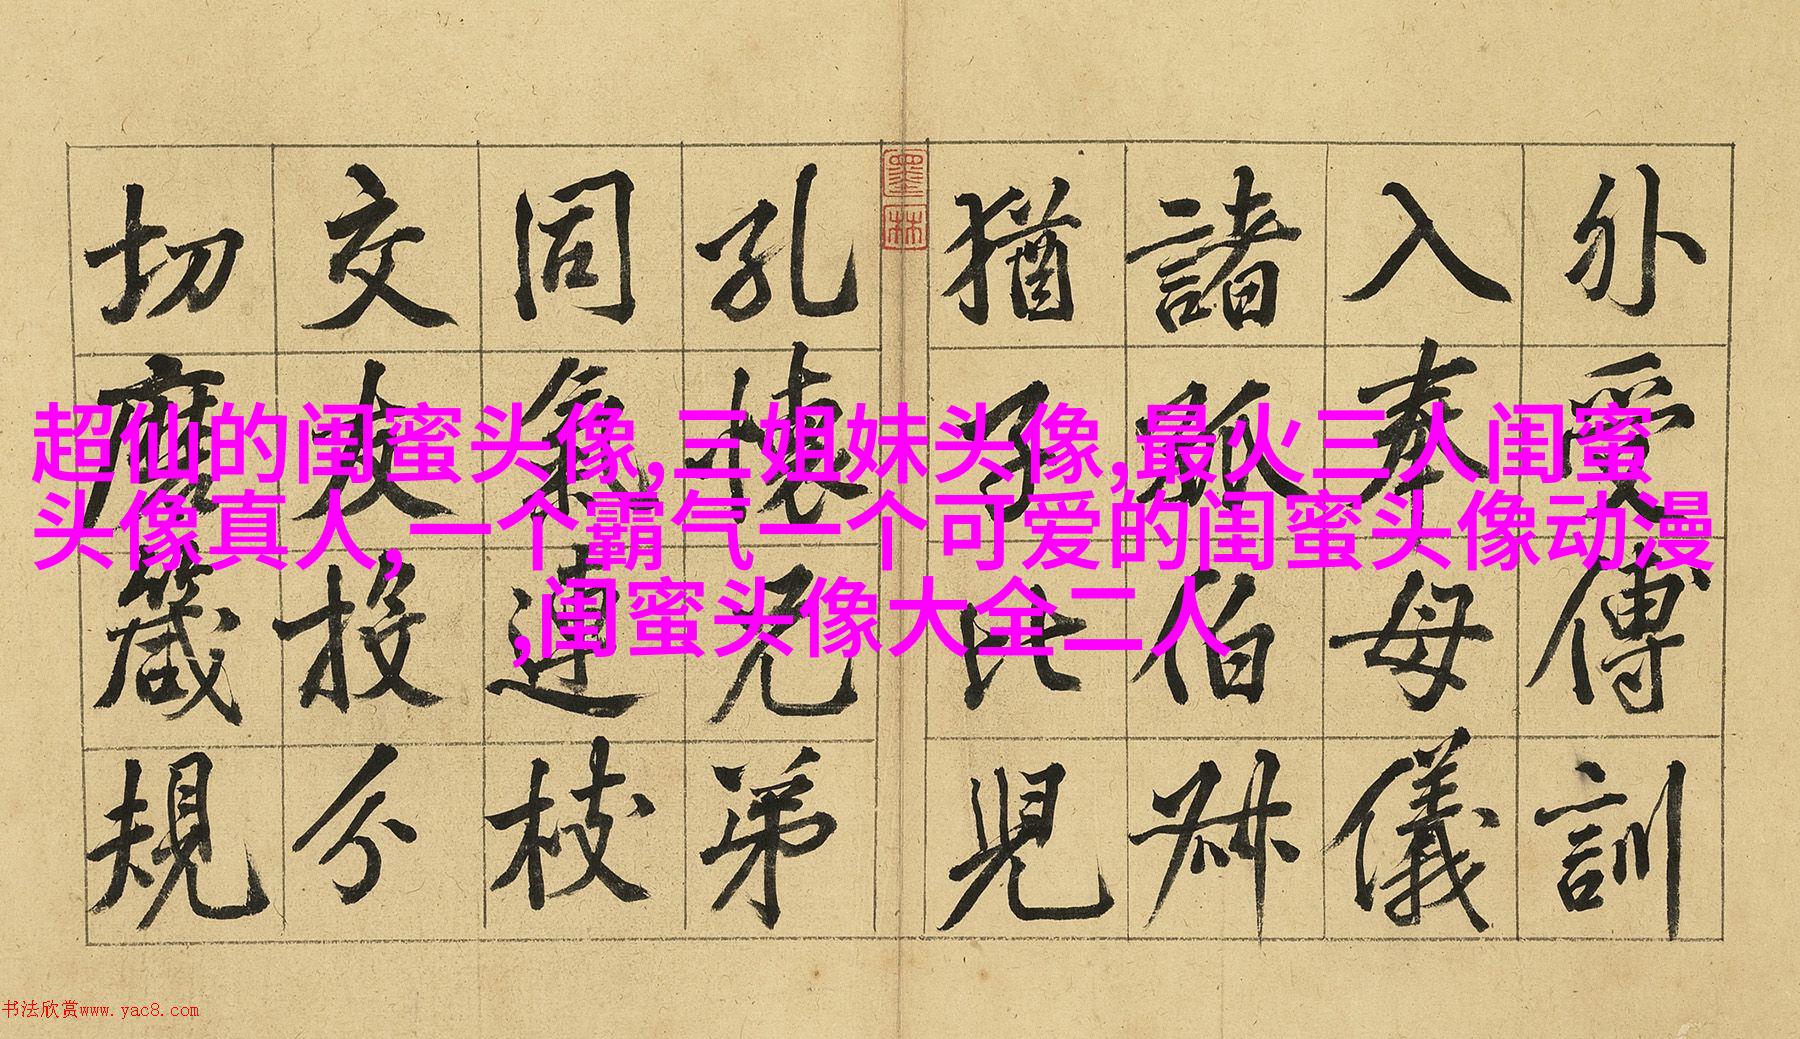 外受傅訓
入奉母儀
諸姑伯叔
猶子比兒
墨林
孔懷兄弟
同氣連枝
交友投分
切磨箴規
超仙的闺蜜头像,三姐妹头像,最火三人闺蜜
头像真人,一个霸气一个可爱的闺蜜头像动漫
,闺蜜头像大全二人
书法欣赏www.yac8.com